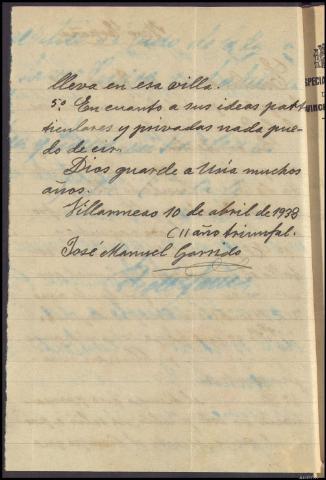 lleva en esa villa.
5º En cuanto a sus ideas par-
ticulares y privadas nada pue-
do decir.
Dios guarde a Usía muchos
años.
Villarmeao 10 de abril de 1938
(II año triunfal.
José Manuel Garrido
ESPECIA